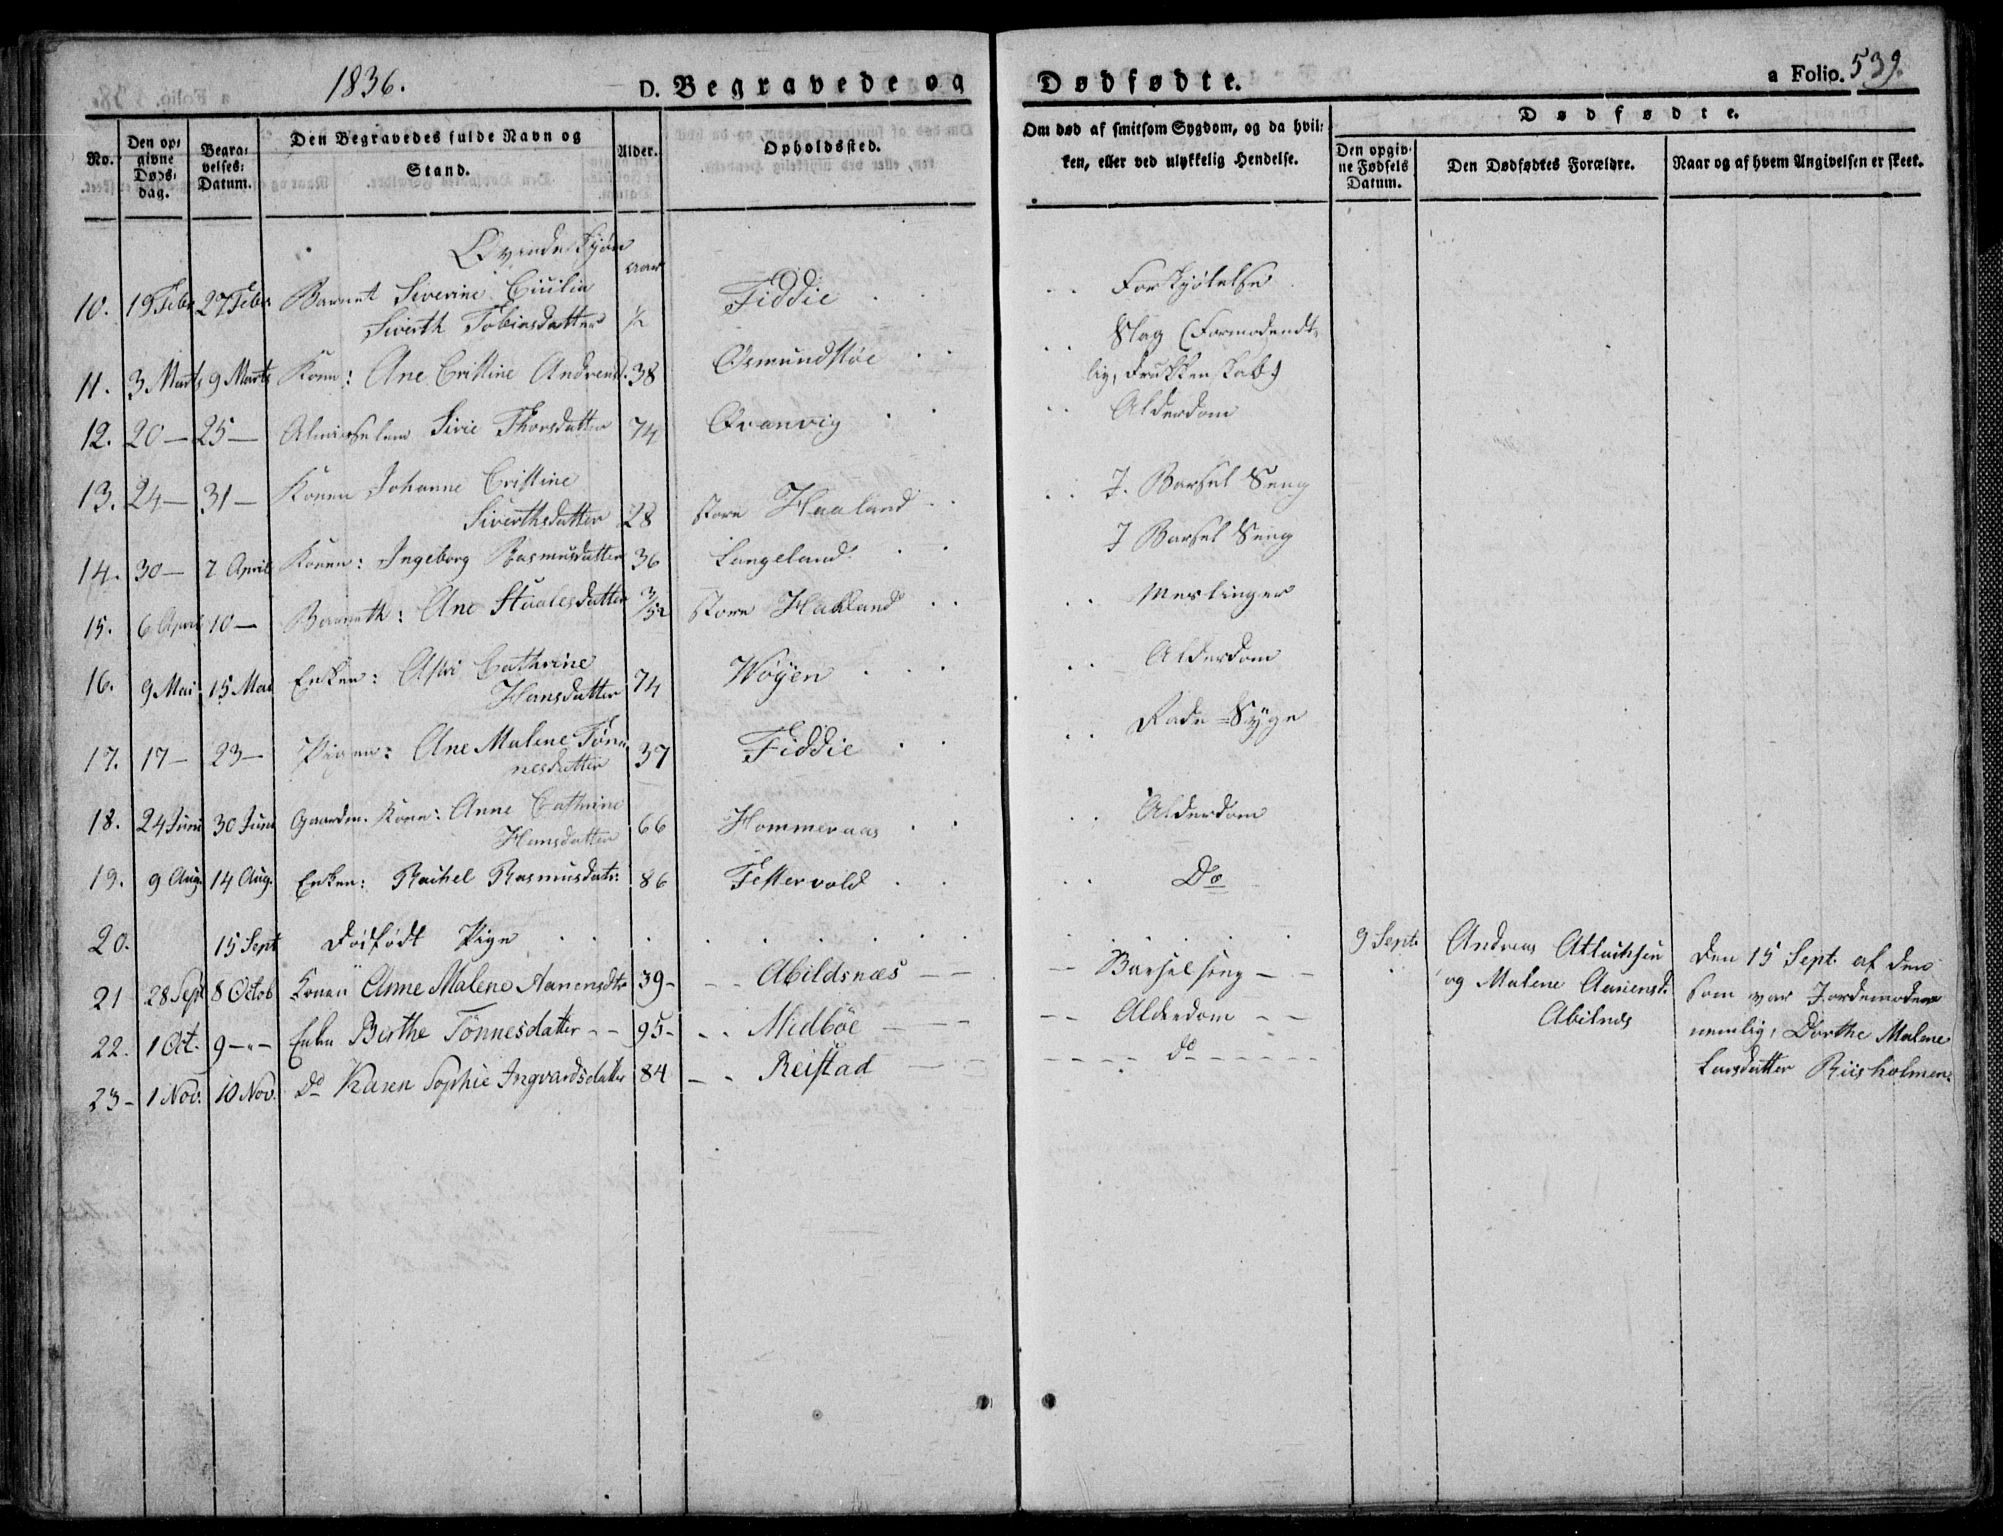 1836.
D. Begravede og Dødfødte.
a Folio. 539.
No.
Den op:
givne
Døds:
dag.
Begra:
velses:
Datum.
Den Begravedes fulde Navn og
Stand.
Alder.
Opholdssted.
Om død af smitsom Sygdom, og da hvil:
ken, eller ved ulykkelig Hendelse.
Dødfødte.
Den opgiv-
ne Fødsels
Datum.
Den Dødfødtes Forældre.
Naar og af hvem Angivelsen er skeet.
Qvindekjøn
aar
10. 19 Febr 27 Febr Barnet Siverine Cicilia Fiddie . . . Forkjølelse
Siverth Tobiasdatter ½
Slag (Formodendt-
11. 3 Marts 9 Marts Kone: Ane Cristine Andreasd. 38 Osmundstøe
lig, Drukkenskab)
12. 20 — 25 — Almisselem Sirie Thorsdatter 74 Qvanvig . . Alderdom
13. 24 — 31 — Konen Johanne Cristine
Siverthsdatter 28 store Haaland . . . I. Barsel Seng
14. 30 — 7 April Konen: Ingeborg Rasmusdatter 36 Langeland . . I Barsel Seng
15. 6 April 10 — Barneth: Ane Staalesdatter 3/52 store Haaland . . . Meslinger
16. 9 Mai 15 Mai Enken: Cathrine
Hansdatter 74 Wøyen . . . Alderdom
17. 17 — 23 — Pigen: Ane Malene Tøn-
nesdatter 37 Fiddie . . . Rade-Syge
18. 24 Juni 30 Juni Gaardm. Kone: Anne Cathrine
Hansdatter 66 Hommeraas . . . Alderdom
19. 9 Aug. 14 Aug. Enken: Rachel Rasmusdatr: 86 Festervold . . . Do
20. 15 Sept Dødfødt Pige . . . 9 Sept. Andreas Atlachsen
og Malene Aanensd.
Abilnes
Den 15 Sept. af den
som var Jordemoder
nemlig, Dorthe Malene
Larsdatter Riisholmen.
21 28 Sept 8 Octob Konen Anne Malene Aanensdtr 39 - - . Abildsnæs — — — Barselseng — —
22. 1 Oct. 9 —"— Enken Berthe Tønnesdatter - - 95 - . . Midbøe — — — — Alderdom — —
23 - 1 Nov. 10 Nov. Do Karen Sophie Ingvardsdatter 84 — . Reistad — — — — do — — — —